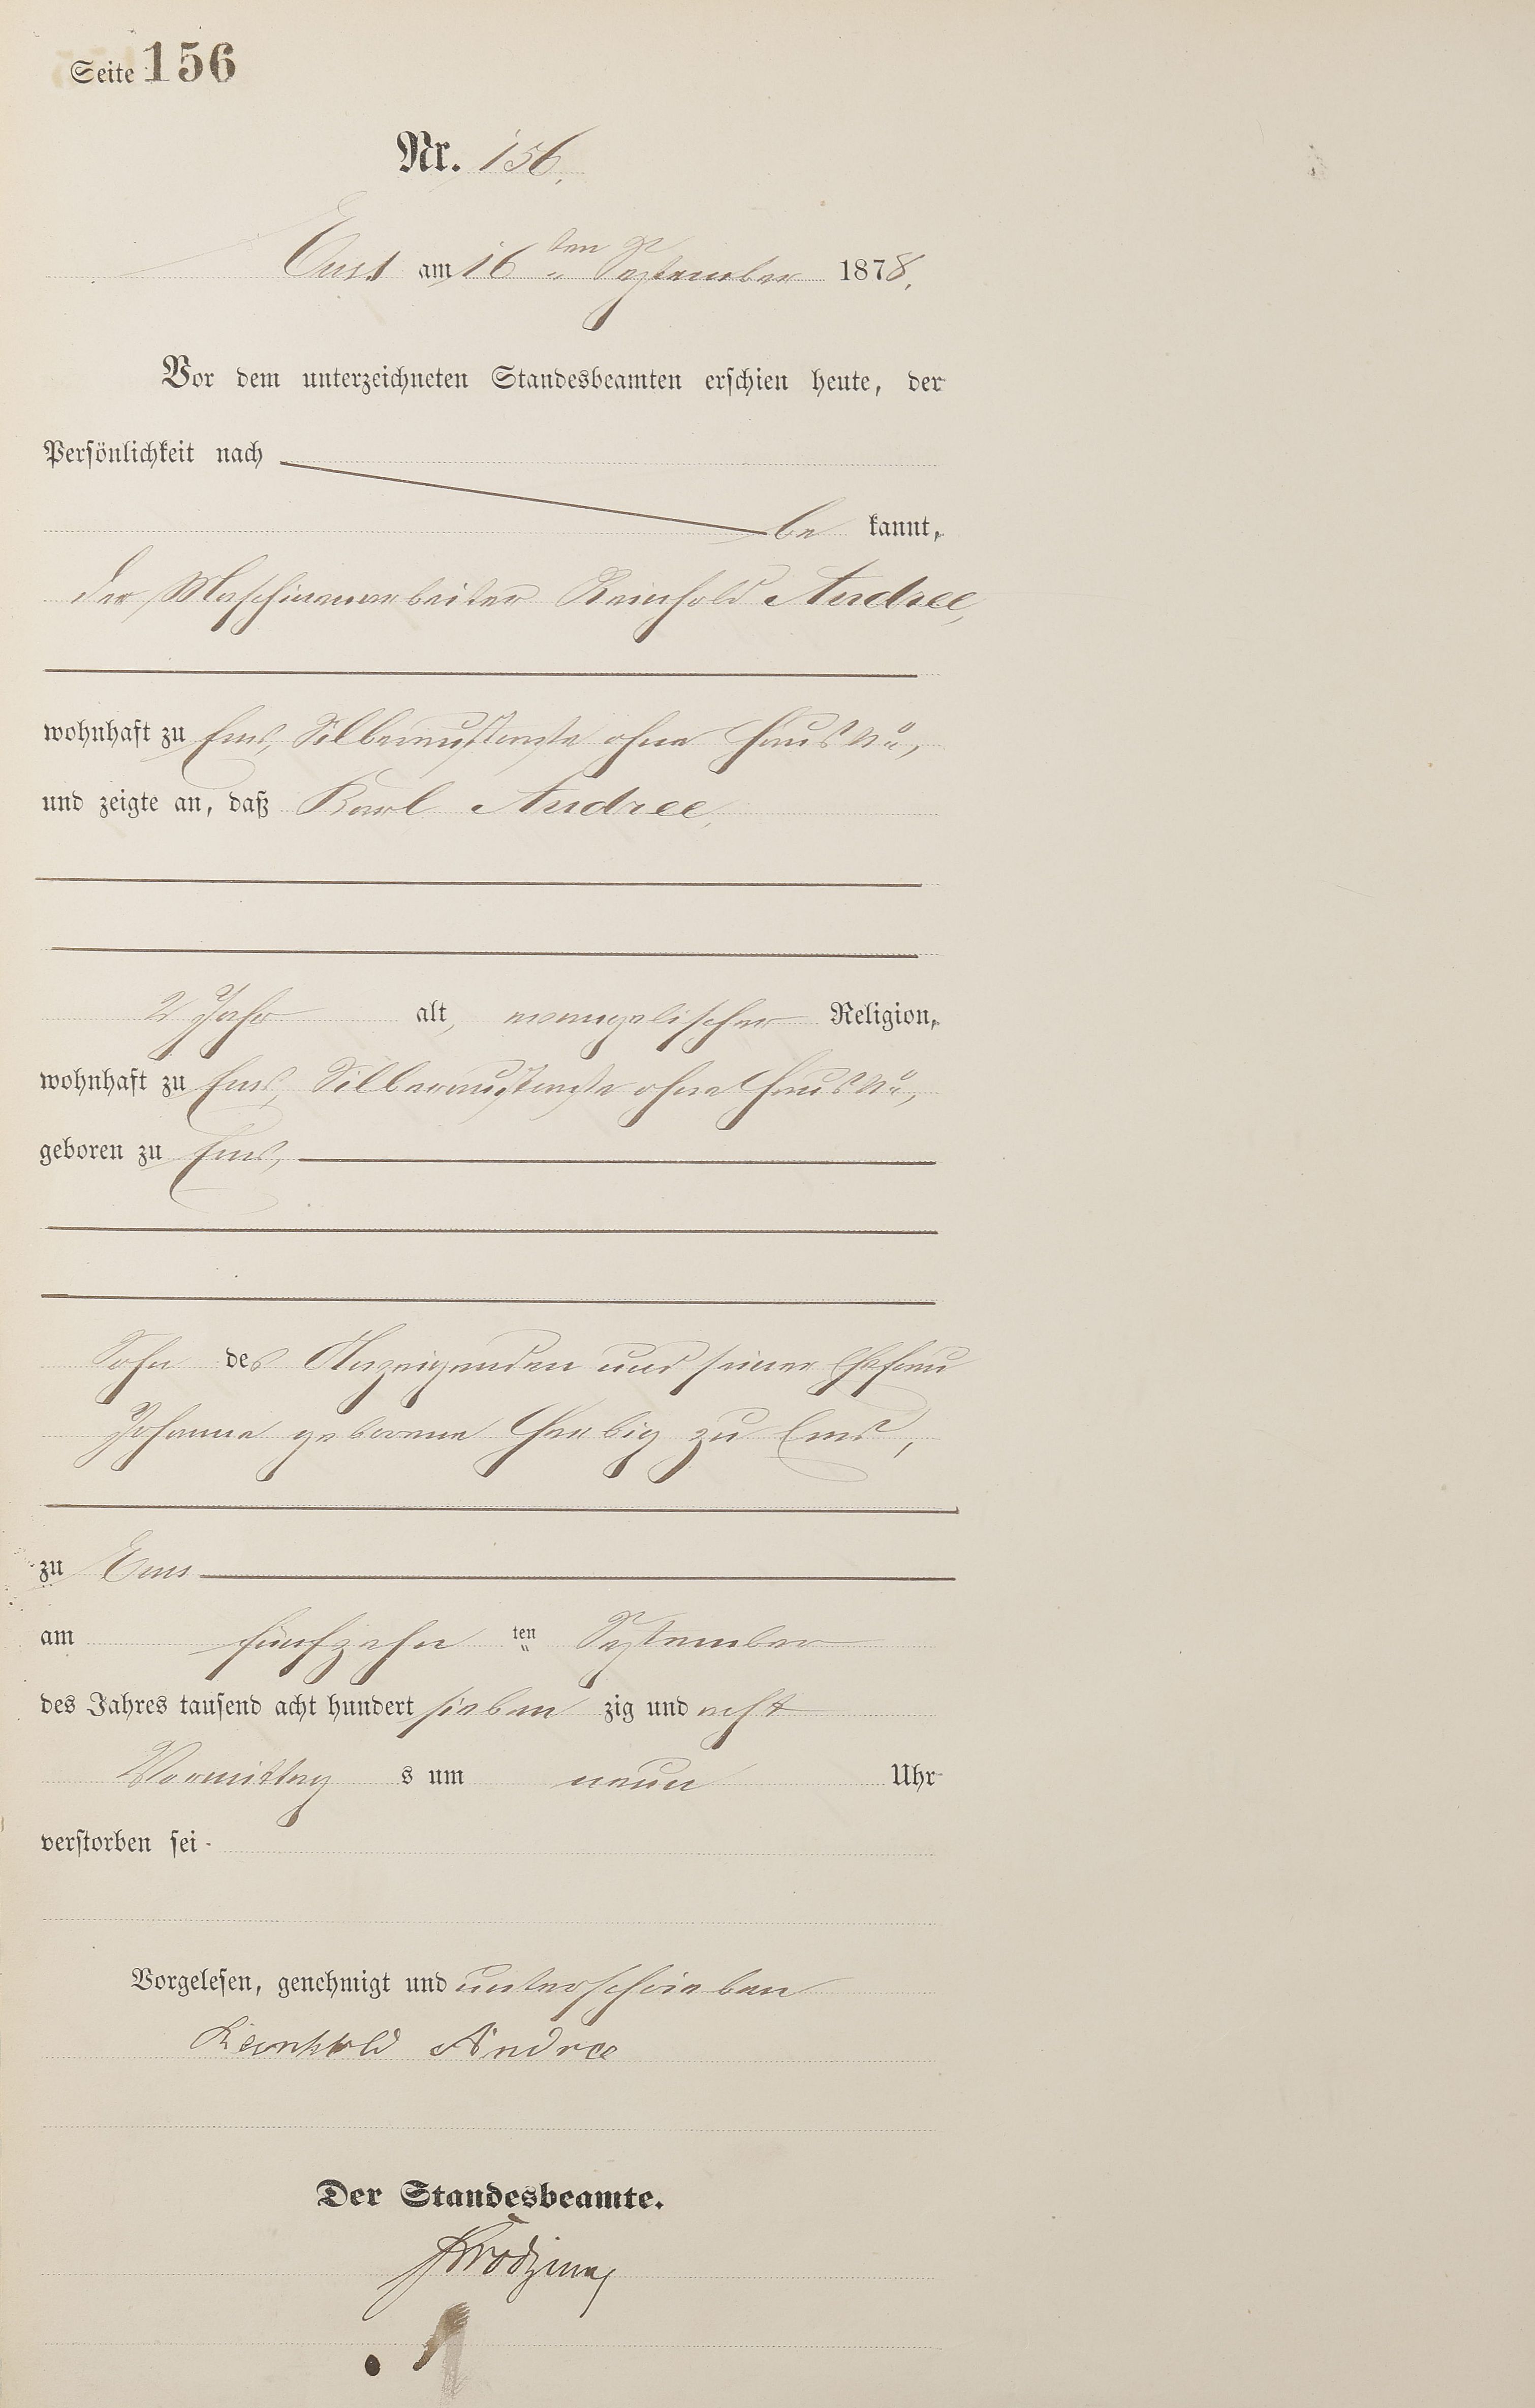 Seite 156
Nr. 156.
Ems am 16 ten September 1878.
Vor dem unterzeichneten Standesbeamten erschien heute, der
Persönlichkeit nach
be kannt,
der Maschinenarbeiter Reinhold Andree,
wohnhaft zu Ems, Silberaustraße ohne Haus No,
und zeigte an, daß Karl Andree,
2 Jahr alt, evangelischer Religion,
wohnhaft zu Ems, Silberaustraße ohne Haus No,
geboren zu Ems,
Sohn des Anzeigenden und seiner Ehefrau
Johanna geborene Helbig zu Ems,
zu Ems
am fünfzehn ten September
des Jahres tausend acht hundert sieben zig und acht
Vormittag s um neun Uhr
verstorben sei.
Vorgelesen, genehmigt und unterschrieben
Reinhold Andree
Der Standesbeamte.